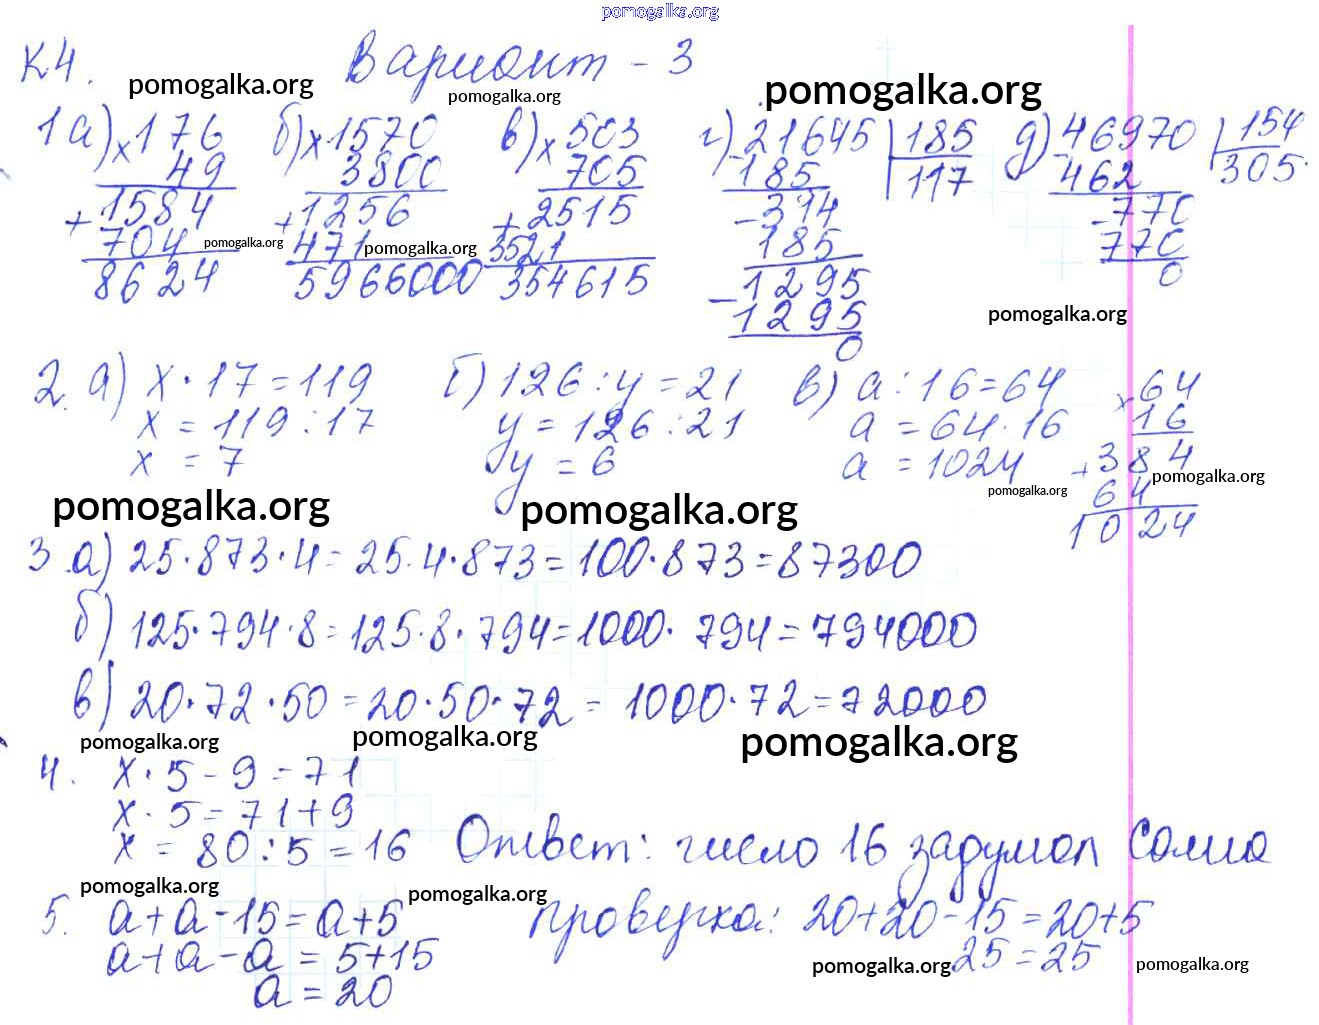 pomogalka.org
К4. Вариант - 3
pomogalka.org pomogalka.org pomogalka.org
1 а) × 176 б) × 1570 в) × 503 г) 21645 | 185 д) 46970 | 154
49 3800 705 - 185 117 - 462 305.
+ 1584 + 1256 + 2515 - 314 - 770
704 pomogalka.org 471 pomogalka.org 3521 185 770
8624 5966000 354615 - 1295 0
1295 pomogalka.org
0
2. а) x · 17 = 119 б) 126 : y = 21 в) a : 16 = 64 × 64
x = 119 : 17 y = 126 : 21 a = 64 · 16 16
x = 7 y = 6 a = 1024 + 384
pomogalka.org pomogalka.org pomogalka.org 64 pomogalka.org
1024
3. а) 25 · 873 · 4 = 25 · 4 · 873 = 100 · 873 = 87300
б) 125 · 794 · 8 = 125 · 8 · 794 = 1000 · 794 = 794000
в) 20 · 72 · 50 = 20 · 50 · 72 = 1000 · 72 = 72000
pomogalka.org pomogalka.org pomogalka.org
4. x · 5 - 9 = 71
x · 5 = 71 + 9
x = 80 : 5 = 16 Ответ: число 16 задумал Сома
pomogalka.org pomogalka.org
5. a + a - 15 = a + 5 проверка: 20 + 20 - 15 = 20 + 5
a + a - a = 5 + 15 pomogalka.org 25 = 25 pomogalka.org
a = 20